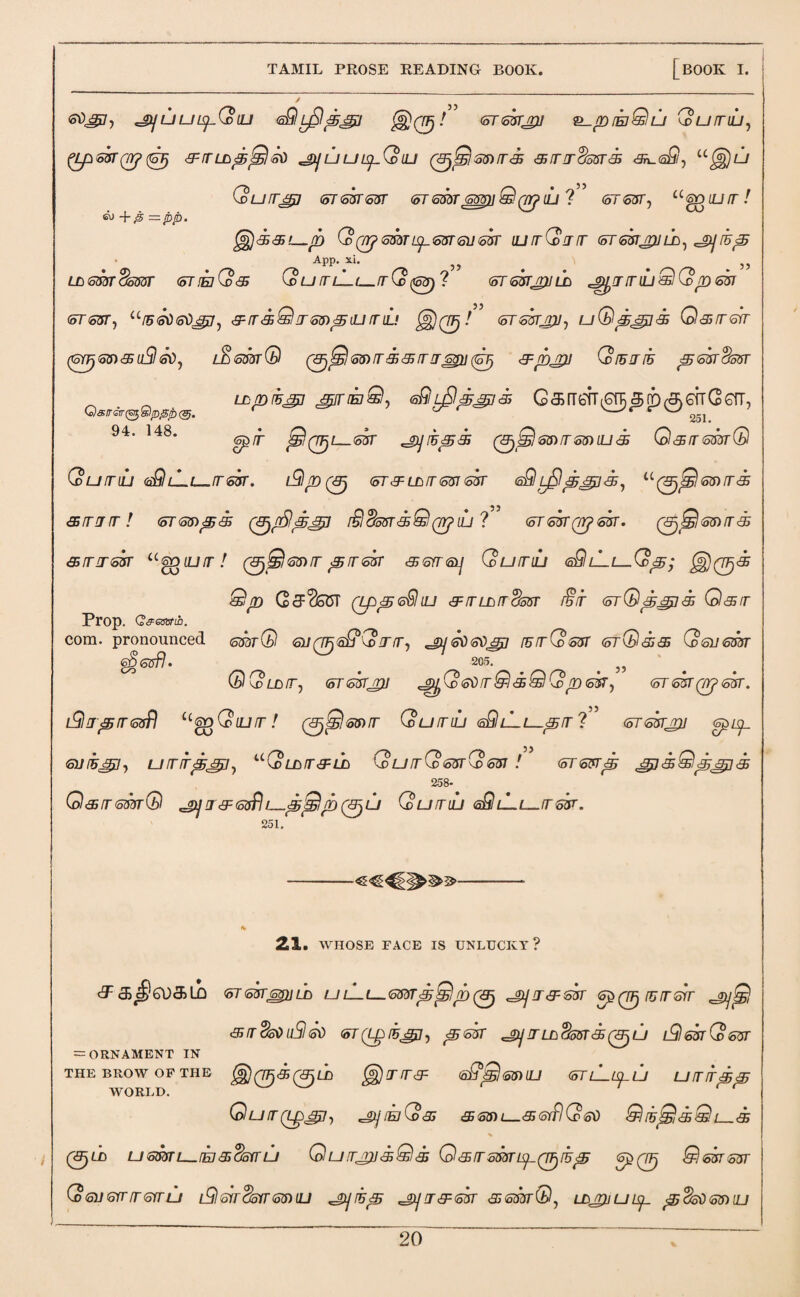 TAMIL PROSE READING BOOK. [BOOK I.
லது, அப்படியே விழித்து இரு!” என்று உறங்கப் போய்,
முன்னூறு சாமத்தில் அப்படியே குதிரைக் காரனைக் கூவி, “இப்
போது என்ன எண்ணுகிறாய்?” என, “ஐயா!
ல் + த = ற்ற.
இக்கடற் றோண்டினவன் யாரோ என்றும், அந்த
App. xi.
மண்ணை எங்கே போட்டானோ? என்றும் ஆராய்கிறேன்”
என, “நல்லது, சாக்கிரதையாய் இரு!” என்று, படுத்துக் கொள்
ளுகையில், மீண்டு குதிரைக்காரனுஞ் சற்று நேரந் தன்னை
மறந்து தூங்கி, விழித்துக் கொள்ளுதற்குள்ளே,
251.
கொள்ளுகிறதற்கு.
94. 148.
ஓர் திருடன் அந்தக் குதிரையைக் கொண்டு
போய் விட்டான். பிறகு எசமானன் விழித்துக், “குதிரைக்
காரா! எதைக் குறித்து நினைக்கிறாய்?” என்றான். குதிரைக்
காரன் “ஐயா! குதிரை தான் களவு போய் விட்டதே; இருக்
கிற சேணை முதலிய சாமானை நீர் எடுத்துக் கொ
Prop. சேணம்.
com. pronounced
ஒண்ணி.
ண்டு வருவீரோ, அல்லது நானே எடுக்க வேண்
205.
டுமோ, என்று ஆலோசிக்கிறேன்,” என்றான்.
பிரதானி “ஐயோ! குதிரை போய் விட்டதா?” என்று ஓடி
வந்து, பார்த்து, “மோசம் போனேனே!” என்றத் துக்கித்துக்
258.
கொண்டு அரசனிடத்திற்குப் போய் விட்டான்.
251.
21. WHOSE FACE IS UNLUCKY?
சகதிலகம் என்னும் பட்டணத்திற்கு அரசன் ஒரு நாள் அதி
காலையில் எழுந்து, தன் அரமனைக்குப் பின்னே
= ORNAMENT IN
THE BROW OF THE
WORLD.
இருக்கும் இராச வீதியை எட்டிப் பார்த்த
பொழுது, அங்கே கடைகளிலே சிந்திக்கிடக்
கும் பண்டங்களைப் பொறுக்கிக் கொண்டிருந்த ஒரு சின்ன
வேளாளப் பிள்ளையை அந்த அரசன் கண்டு, மறுபடி தலையை
20